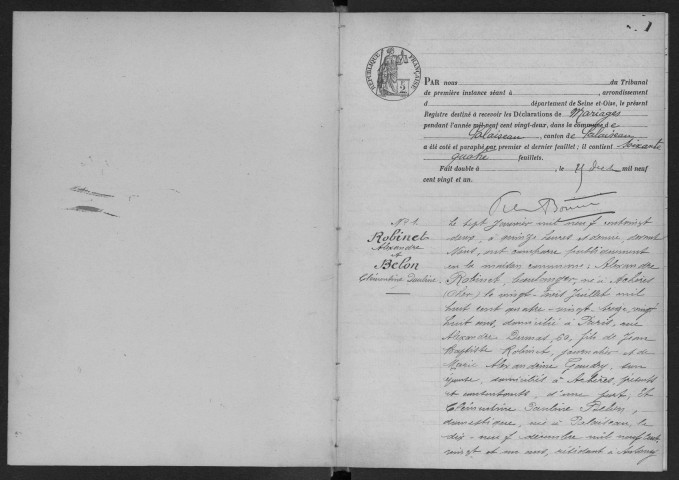 1
RÉPUBLIQUE FRANÇAISE
PAR nous du Tribunal
de première instance séant à , arrondissement
d , département de Seine-et-Oise, le présent
Registre destiné à recevoir les Déclarations de Mariages
pendant l'année mil neuf cent vingt-deux, dans la commune de
Palaiseau, canton de Palaiseau
a été coté et paraphé par premier et dernier feuillet; il contient soixante
quatre feuillets.
Fait double à , le Dec mil neuf
cent vingt et un.
No 1
Robinet
Alexandre
et
Belon
Clémentine Pauline
Le sept Janvier mil neuf cent vingt
deux, à quinze heures et demie, devant
Nous, ont comparu publiquement
en la maison commune: Alexandre
Robinet, boulanger, né à Achères
(Cher) le vingt trois Juillet mil
huit cent quatre-vingt treize, vingt
huit ans, domicilié à Paris, rue
Alexandre Dumas, 50, fils de Jean
Baptiste Robinet, journalier et de
Marie Alexandrine Gaudry, son
épouse, domiciliés à Achères, présents
et consentants, d'une part; Et
Clémentine Pauline Belon,
domestique, née à Palaiseau, le
dix-neuf décembre mil neuf cent
vingt et un ans, résidant à